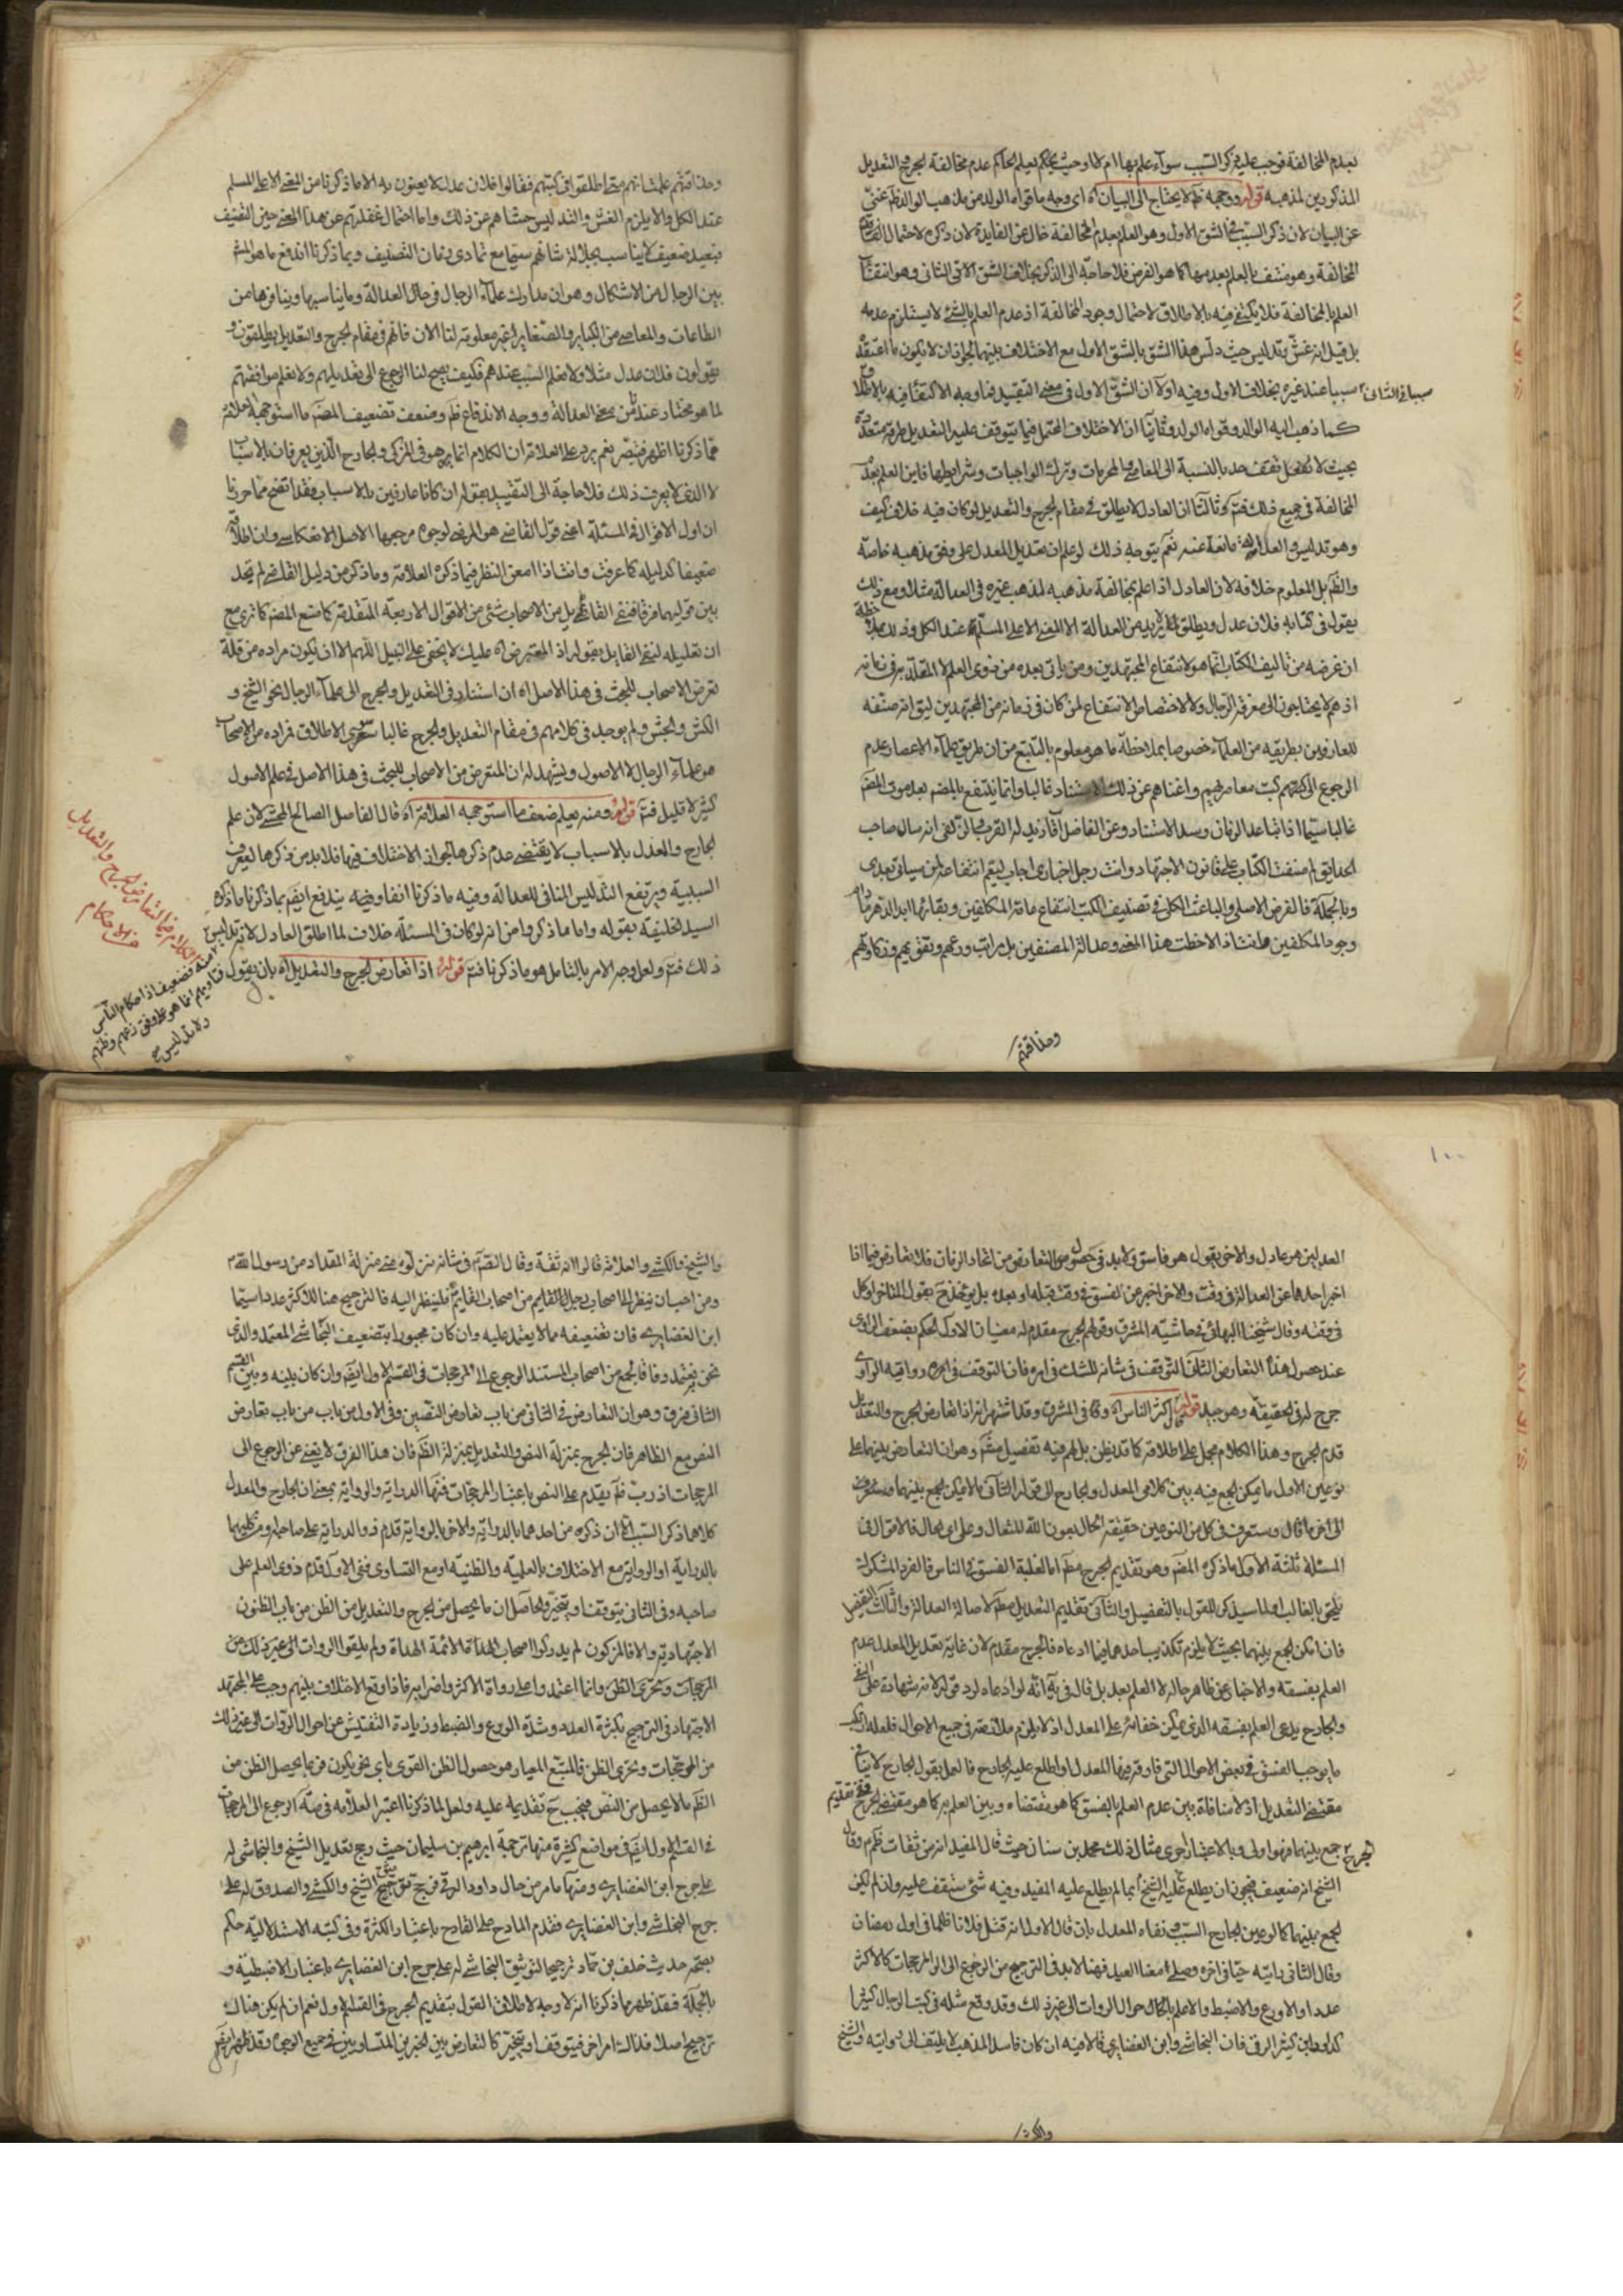 بعدم المخالفة فوجب عليه ذكر السبب سوآء علم بها ام لا وحيث يحكم بعلم الحاكم عدم مخالفة الجرح والتعديل
المذكورين لمذهبه قوله ووجهه ظ لا يحتاج الى البيان اه اى وجه ما قواه الوالد من مذهب الوالد ظ غنى
عن البيان لان ذكر السبب فى الشق الاول وهو العلم بعدم المخالفة خال عن الفايدة لان ذكره لاحتمال
المخالفة وهو منتف بالعلم بعدمها كما هو الفرض فلا حاجة الى الذكر بخلاف الشق الاتى الثانى وهو انتفآء
العلم بالمخالفة فلا يكتفى فيه بالاطلاق لاحتمال وجود المخالفة اذ عدم العلم بالشئ لا يستلزم عدمه
بل قيل انه غش وتدليس حيث دلس هذا الشق بالشق الاول مع الاختلاف بينهما لجواز ان لا يكون ما اعتقده
سببا عند غيره بخلاف الاول وفيه اولا ان الشق الاول فى معنى التقييد فما وجه الاكتفا فيه بالاطلاق
كما ذهب اليه الوالد وقواه الولد وثانيا ان الاختلاف المحتمل فيما يتوقف عليه التعديل طرقه متعددة
بحيث لا تقف حد بالنسبة الى المعاصى والمحرمات وترك الواجبات وشرايطها فاين العلم بعدم
المخالفة فى جميع ذلك فتم وثالثا ان العادل لا يطلق فى مقام الجرح والتعديل لو كان فيه خلاف كيف
وهو تدليس والعدالة مانعة عنه نعم يتوجه ذلك لو علم ان تعديل المعدل على وفق مذهبه خاصة
والظ بل المعلوم خلافه لان العادل اذا علم بمخالفة مذهبه لمذهب غيره فى العدالة مثلا ومع ذلك
يقول فى كتابه فلان عدل ويطلق لا يريد من العدالة الا المعنى الاعلى المسلم عند الكل
ان غرضه من تاليف الكتاب انما هو لانتفاع المجتهدين ومن ياتى بعده من ذوى العلم لا المقلد بر فى زمانه
اذ هم لا يحتاجون الى معرفة الرجال ولا لاختصاص الانتفاع لمن كان فى زمانه من المجتهدين ليق انه صنفه
للعارفين بطريقه من العلمآء خصوصا بملاحظة ما هو معلوم بالتتبع من ان طريق علمآء الاعصار عدم
الرجوع الى كتب معاصريهم واغناهم عن ذلك الاستناد غالبا وانما ينتفع بالمصنفه بعد موت المصنف
غالبا سيما اذا تباعد الزمان وسد الاستناد وعن الفاضل
الحدايق لم صنفت الكتاب على قانون الاجتهاد وانت رجل اخبارى اجاب ليعم انتفاعه لمن سياتى بعدى
وبالجملة فالغرض الاصلى والباعث الكلى فى تصنيف الكتب انتفاع عامة المكلفين وبقائها ابد الدهر ما دام
وجود المكلفين فاذا لاحظت هذا المعنى وعدالة المصنفين بل مراتب ورعهم وتقويهم وذكاوتهم
ومذاقتهم
سببا فى الثانى
ومذاقتهم علمت انهم متى اطلقوا فى كتبهم فقالوا فلان عدل لا يعنون به الا ما ذكرنا من المعنى الاعلى المسلم
عند الكل والا يلزم الغش والتدليس حشاهم عن ذلك واما احتمال غفلتهم عن هذا المعنى حين التصنيف
فبعيد ضعيف لا يناسب بجلالة شانهم سيما مع تمادى زمان التصنيف وبما ذكرنا اندفع ما هو المش
بين الرجال من الاشكال وهو ان مدارك علمآء الرجال فى حال العدالة وما يناسبها وينافرها من
الطاعات والمعاصى من الكباير والصغاير غير معلومة لنا الان فانهم فى مقام الجرح والتعديل يطلقون و
يقولون فلان عدل مثلا ولا نعلم السبب عندهم فكيف يصح لنا الرجوع الى تعديلهم ولا نعلم موافقتهم
لما هو مختار عندنا من معنى العدالة ووجه الاندفاع ظ وضعف تضعيف المصنف ما استوجهه العلامة
مما ذكرنا اظهر فتبصر نعم يرد على العلامة ان الكلام انما هو فى المزكى والجارح الذين يعرفان بالاسباب
لا الذى لا يعرف ذلك فلا حاجة الى التقييد بقوله ان كانا عارفين بالاسباب فقد اتضح مما حررنا
ان اول الاقوال فى المسئلة اعنى قول القاضى هو المرضى لوجوه مرجعها الاصل
ضعيفا كدليله كما عرفت وانت اذا امعن النظر فيما ذكره العلامة وما ذكر من دليل القاضى لم تجد
بين قوليهما فرقا
ان تعليله
تعرض الاصحاب للبحث فى هذا الاصل اه ان استناد فى التعديل والجرح الى علمآء الرجال نحو الشيخ و
الكش والنجش ولم يوجد فى كلامهم فى مقام التعديل والجرح غالبا سوى الاطلاق فمراده من الاصحاب
هو علمآء الرجال لا الاصول ويشهد له ان المتعرض من الاصحاب للبحث فى هذا الاصل فى علم الاصول
كثير لا قليل فتم قوله ومنه يعلم ضعف ما استوجهه العلامة اه قال الفاضل الصالح المحشى لان علم
الجارح والعدل بالاسباب لا يقتضى عدم ذكرها اذ الاختلاف فيها فلا بد من ذكرها ليعرف
السببية ويرتفع التدليس المنافى للعدالة وفيه ما ذكرنا انفا وفيه يندفع ايضا بما ذكرنا ما ذكره
السيد الخليفة بقوله واما ما ذكروا من انه لو كان فى المسئلة خلاف لما اطلق العادل لانه تدليس
ذلك فتم ولعل وجه الامر بالتامل هو ما ذكرنا فتم قوله اذا تعارض الجرح والتعديل اه بان يقول
الكلام فيما لتعارض الجرح والتعديل
من الاحكام
منه فضعيف اذ احكام الناس
وفتاويهم انما هو على وفق زعمهم وظنهم
ولا تدليس
١٠٠
العدلين هو عادل والاخر يقول هو فاسق ولا بد فى حصول التعارض من اتحاد الزمان فلا تعارض فيما اذا
اخبر احدهما عن العدالة فى وقت والاخر اخبر عن الفسق فى وقت قبله او بعده بل يؤخذ ح بقول المتاخر او كل
فى وقته وقال شيخنا البهائى فى حاشية المشرق وقولهم الجرح مقدم له معنيان الاول الحكم بضعف الراوى
عند حصول هذا التعارض الثانى التوقف فى شانه للشك فى امره فان التوقف فى امره رواية الراوى
جرح له فى الحقيقة وهو جيد قوله اكثر الناس اه وقا فى المشرق وقد اشتهر انه اذا تعارض الجرح والتعديل
قدم الجرح وهذا الكلام مجمل على اطلاقه كما قد يظن بل لهم فيه تفصيل مشهور وهو ان التعارض بينهما على
نوعين الاول ما يمكن الجمع فيه بين كلامى المعدل والجارح الى قوله الثانى ما لا يمكن الجمع بينهما
الى اخر ما قال وستعرف فى كل من النوعين حقيقة الحال بعون الله المتعال وعلى اى حال فالاقوال فى
المسئلة ثلثة الاول ما ذكره المصنف وهو تقديم الجرح مط اما لغلبة الفسق فى الناس فالفرد المشكوك
يلحق بالغالب او لما سيذكر للقول بالتفصيل والثانى تقديم التعديل مط لاصالة العدالة والثالث التفصيل
فان امكن الجمع بينهما بحيث لا يلزم تكذيب احدهما فيما ادعاه فالجرح مقدم لان غاية تعديل المعدل عدم
العلم بفسقه والاخبار عن ظاهر حاله لا العلم بعد بل قال فى يه انه لو ادعاه لرد قوله لانه شهادة على النفى
والجارح يدعى العلم بفسقه الذى يمكن خفائه على المعدل اذ لا يلزم ملازمته فى جميع الاحوال فلعله ارتكب
ما يوجب الفسق فى بعض الاحوال التى فارقه فيها المعدل واطلع عليه الجارح فالعمل بقول الجارح لا ينافى
مقتضى التعديل اذ لا منافاة بين عدم العلم بالفسق كما هو مقتضاه وبين العلم به كما هو مقتضى الجرح ففى تقديم
الجرح جمع بينهما فهو اولى وبالاعتبار احرى مثال ذلك محمد بن سنان حيث قال المفيد انه من ثقات الكاظم وقال
الشيخ انه ضعيف فيجوز ان يطلع عليه الشيخ بما لم يطلع عليه المفيد وفيه شئ ستقف عليه وان لم يكن
الجمع بينهما كما لو عين الجارح السبب ونفاه المعدل بان قال الاول انه قتل فلانا ظلما فى اول رمضان
وقال الثانى رايته حيا فى اخره وصلى معنا العيد فهنا لا بد فى الترجيح من الرجوع الى المرجحات كالاكثر
عددا والاورع والاضبط والاعلم باحوال الروات الى غير ذلك وقد وقع مثله فى كتب الرجال كثيرا
كداود بن كثير الرقى فان النجاشى وابن الغضايرى قالا فيه ان كان فاسد المذهب لا يلتفت الى روايته والشيخ
والشيخ والكشى والعلامة قالوا انه ثقة وقال الصادق فى شانه نزلوه منى منزلة المقداد من رسول الله
ومن احب ان ينظر الى اصحاب القايم فلينظر اليه فالترجيح هنا للاكثر عددا سيما
ابن الغضايرى فان تضعيفه مما لا يعتمد عليه وان كان مجبورا بتضعيف النجاشى المعتمد والذى
نحن نعتمد وفاقا لجمع من اصحاب المستند الرجوع الى المرجحات فى القسم الاول ايضا وان كان بينه وبين القسم
الثانى فرق وهو ان التعارض فى الثانى من باب تعارض النصين وفى الاول من باب تعارض
النص مع الظاهر فان الجرح بمنزلة النص والتعديل بمنزلة الظ فان هذا الفرق لا يغنى عن الرجوع الى
المرجحات اذ رب ظ يقدم على النص باعتبار المرجحات فمنها الدراية والرواية بمعنى ان الجارح والمعدل
كلاهما ذكر السبب ان ذكره من احدهما بالدراية والاخر بالرواية قدم ذو الدراية على صاحبه
بالدراية او الرواية مع الاختلاف بالعلمية والظنية او مع التساوى ففى الاول قدم ذوى العلم على
صاحبه وفى الثانى يتوقف او يتخير والحاصل ان ما يحصل من الجرح والتعديل من الظن من باب الظنون
الاجتهادية والا فالمزكون لم يدركوا اصحاب الائمة الهداة ولم يلقوا الروات الى غير ذلك من
المرجحات وتحرى الظن وانما اعتمدوا على رواة الاكثر واضرابه فاذا وقع الاختلاف بينهم وجب على المجتهد
الاجتهاد فى الترجيح بكثرة العدد وشدة الورع والضبط وزيادة التفتيش عن احوال الروات الى غير ذلك
من المرجحات وتحرى الظن فالمتبع المعيار هو حصول الظن القوى باى نحو يكون فربما يحصل الظن من
الظ ما لا يحصل من النص فيجب ح تقديمه عليه ولعل لما ذكرنا اعتبر العلامة فى صه الرجوع الى المرجحات
فى القسم الاول ايضا فى مواضع كثيرة منها ترجمة ابرهيم بن سليمان حيث رجح تعديل الشيخ والنجاشى له
على جرح ابن الغضايرى ومنها ما مر من حال داود الرقى فرجح توثيق الشيخ والكشى والصدوق له على
جرح النجاشى وابن الغضايرى فقدم المادح على القادح باعتبار الكثرة وفى كتبه الاستدلالية حكم
بصحة حديث خلف بن حماد ترجيحا لتوثيق النجاشى له على جرح ابن الغضايرى باعتبار الاضبطية و
بالجملة فقد ظهر بما ذكرنا انه لا وجه لاطلاق القول بتقديم الجرح فى القسم الاول نعم ان لم يكن هناك
ترجيح اصلا فذلك امر اخر فيتوقف او يتخير كالتعارض بين الخبرين المتساويين فى جميع الوجوه وقد ظهر ايضا